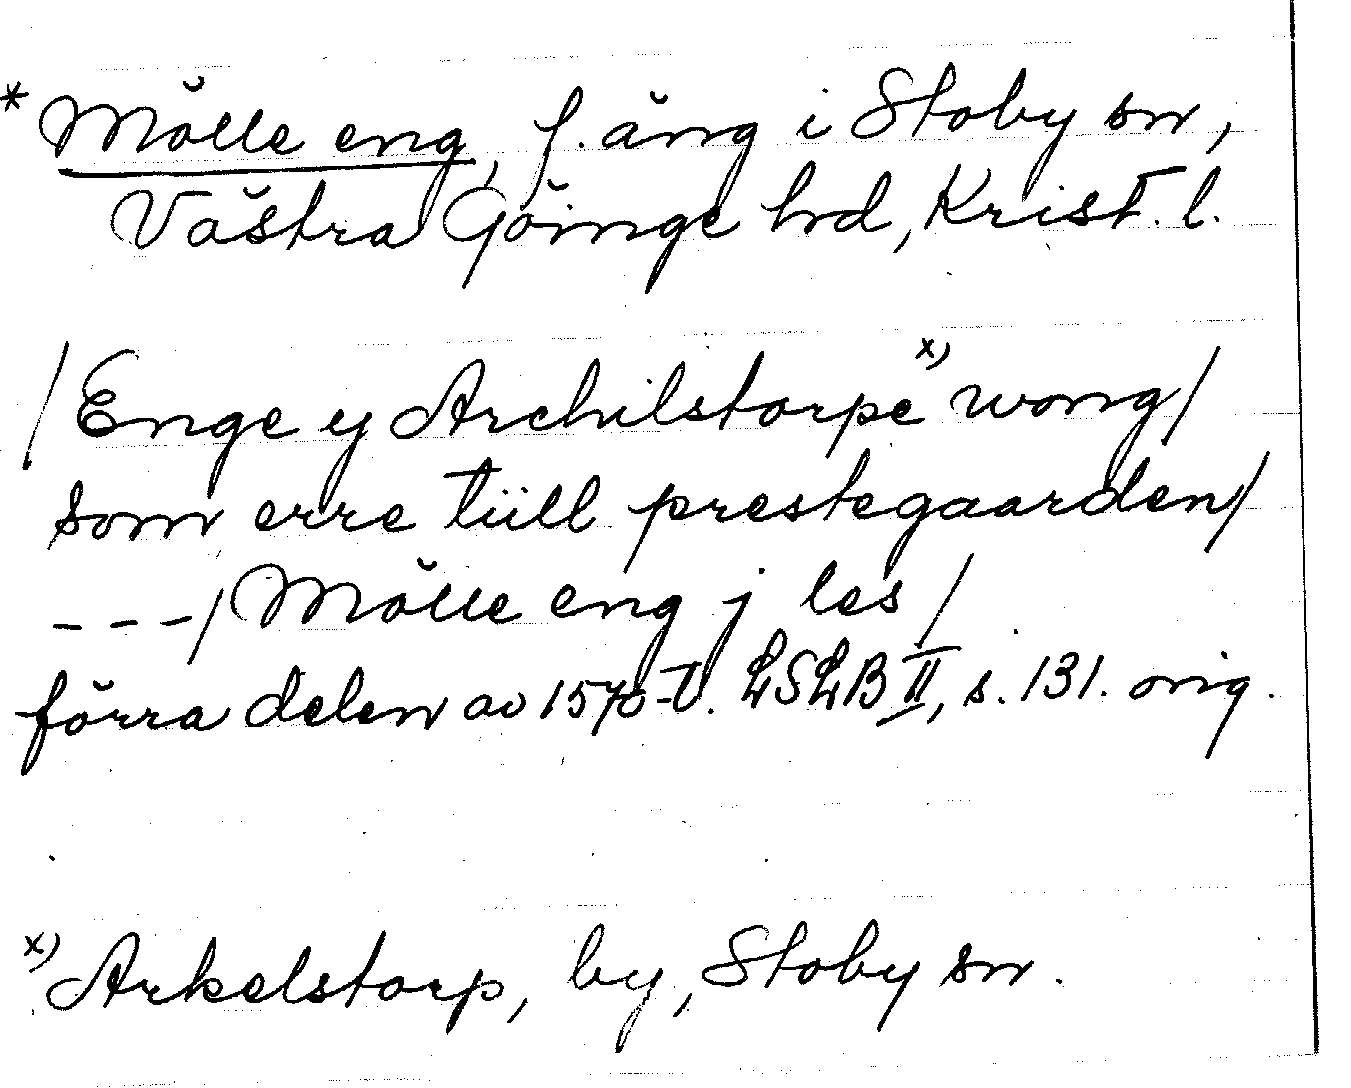 * Mölle eng, f. äng i Stoby sn,
Västra Göinge hd, Krist. l.
/Enge ey Archilstorpe x) wong/
som erre tiill prestegaarden/
---/Mölle eng j les/
förra delen av 1570-t. LSLB II, s. 131. orig.
x) Arkelstorp, by, Stoby sn.